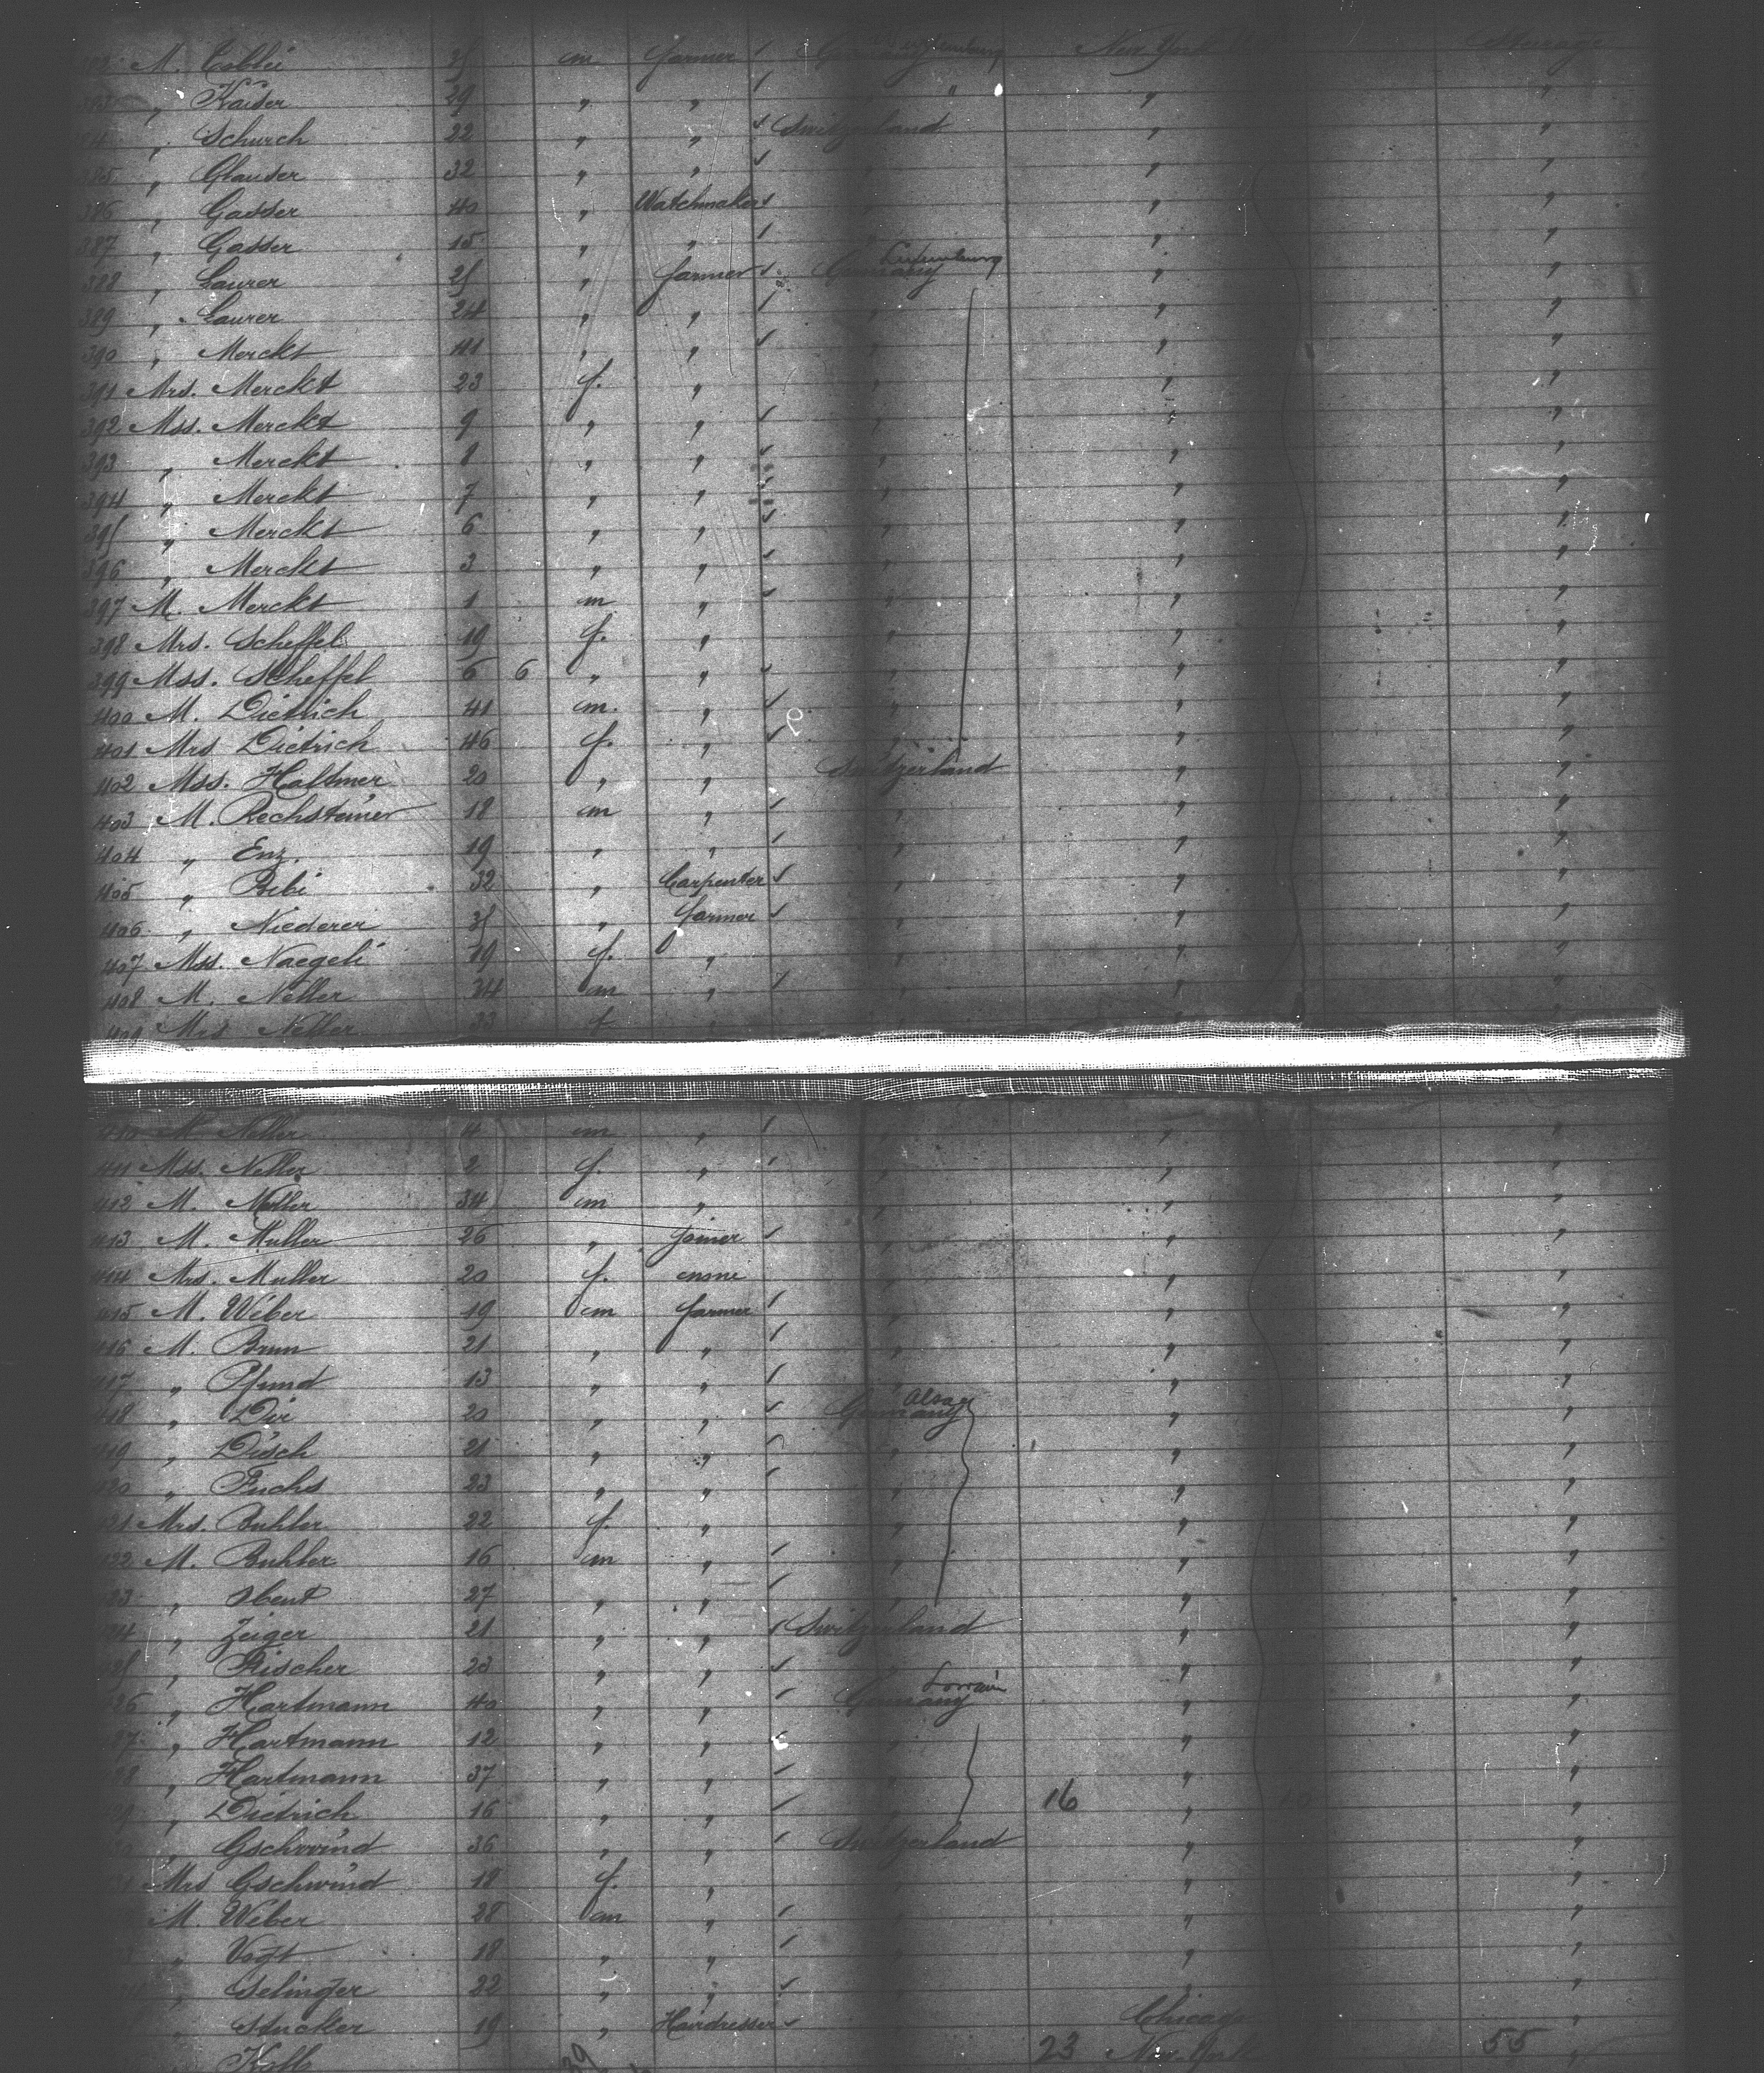 382 M. Coblei 25 m farmer Germany Luxemburg New York Steerage
383 „ Kaiser 29 „ „ „ „ „
384 „ Schurch 22 „ „ Switzerland „ „
385 „ Glauser 32 „ „ „ „ „
386 „ Gasser 40 „ Watchmaker „ „ „
387 „ Gasser 15 „ „ „ „ „
388 „ Laurer 25 „ farmer Germany Luxemburg „ „
389 „ Laurer 24 „ „ „ „ „
390 „ Merckt 41 „ „ „ „ „
391 Mrs. Merckt 23 f. „ „ „ „
392 Mss. Merckt 9 „ „ „ „ „
393 „ Merckt 8 „ „ „ „ „
394 „ Merckt 7 „ „ „ „ „
395 „ Merckt 6 „ „ „ „ „
396 „ Merckt 3 „ „ „ „ „
397 M. Merckt 1 m „ „ „ „
398 Mrs. Scheffel 19 f. „ „ „ „
399 Mss. Scheffel 6 6 „ „ „ „ „
400 M. Dietrich 41 m. „ „ „ „
401 Mrs Dietrich 46 f. „ „ „ „
402 Mss. Haltmer 20 „ „ Switzerland „ „
403 M. Rechsteiner 18 m „ „ „ „
404 „ Enz. 19 „ „ „ „ „
405 „ Bibi 32 „ Carpenter „ „ „
406 „ Niederer 35 „ farmer „ „ „
407 Mss. Naegeli 19 f. „ „ „ „
408 M. Neller 34 m „ „ „ „
409 Mrs Neller 33 f „ „ „ „
410 M Neller 4 m „ „ „ „
411 Mss. Neller 2 f. „ „ „ „
412 M. Muller 34 m „ „ „ „
413 M. Muller 26 „ joiner „ „ „
414 Mrs. Muller 20 f. none „ „ „
415 M. Weber 19 m farmer „ „ „
416 M. Brun 21 „ „ „ „ „
417 „ Pfund 13 „ „ „ „ „
418 „ Dir 20 „ „ Germany Alsace „ „
419 „ Disch 21 „ „ „ „ „
420 „ Fuchs 23 „ „ „ „ „
421 Mrs. Buhler 22 f. „ „ „ „
422 M. Buhler 16 m „ „ „ „
423 „ 27 „ „ „ „ „
424 „ Zeiger 21 „ „ Switzerland „ „
425 „ Rischer 23 „ „ „ „ „
426 „ Hartmann 40 „ „ Germany Lorrain „ „
427 „ Hartmann 12 „ „ „ „ „
428 „ Hartmann 37 „ „ „ „ „
429 „ Dietrich 16 „ „ „ 16 „ 10 „
430 „ Gschwind 36 „ „ Switzerland „ „
431 Mrs Gschwind 18 f. „ „ „ „
M. Weber 28 m „ „ „ „
„ Vogt 18 „ „ „ „ „
„ Selinger 22 „ „ „ „ „
„ Stucker 19 „ Hairdresser „ Chicago „
Kolb 39 23 New-York 55 „